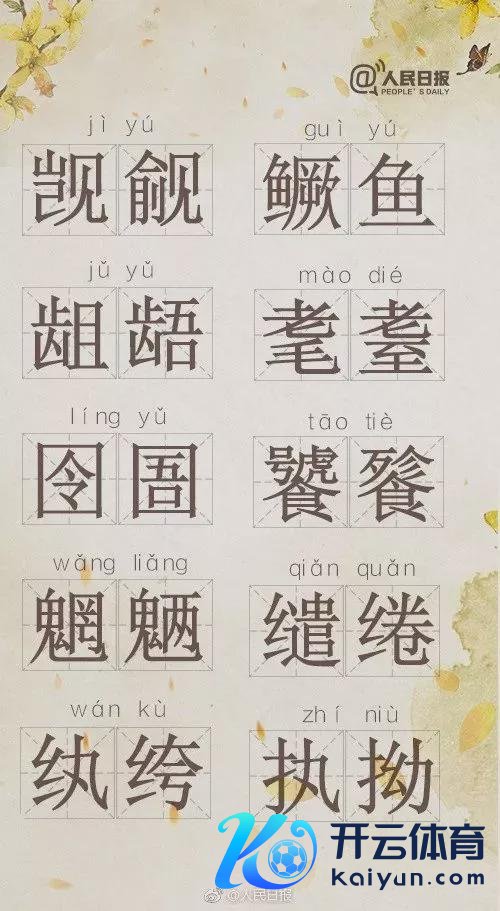 @人民日报
PEOPLE'S DAILY
jì yú
guì yú
觊觎
鳜鱼
jǔ yǔ
mào dié
龃龉
耄耋
líng yǔ
tāo tiè
囹圄
饕餮
wǎng liǎng
qiǎn quǎn
魍魉
缱绻
wán kù
zhí niù
纨绔
执拗
开云体育
kaiyun.com
@人民日报